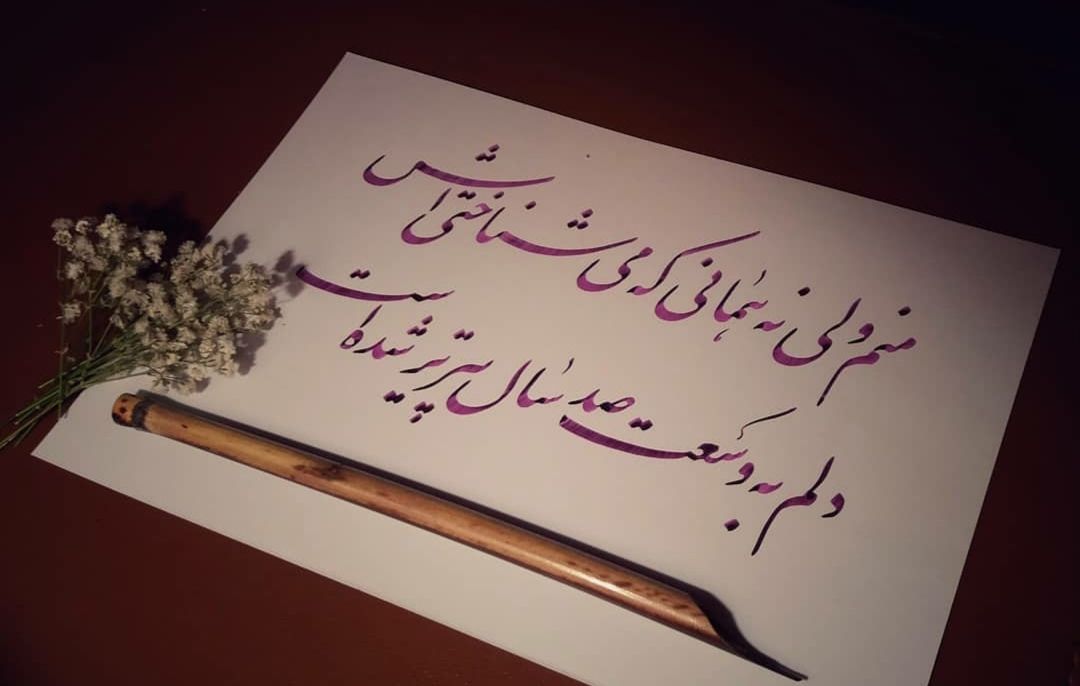 منم ولی نه همانی که می شناختی اش
دلم به وسعت صد سال پیرتر شده است